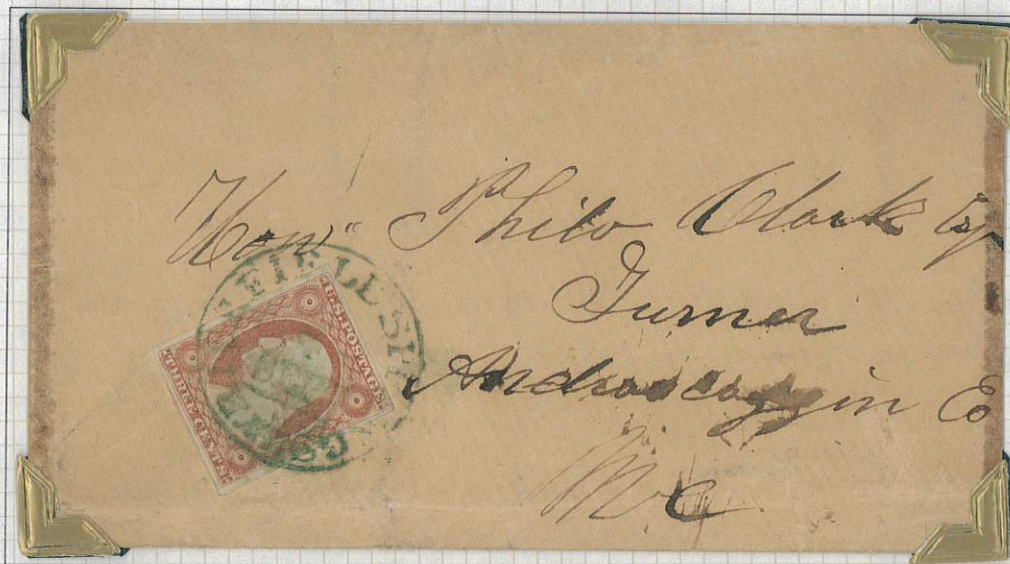 Hon" Philo Clark Esq
Turner
Androscoggin Co
Me
U.S. POSTAGE.
THREE CENTS.